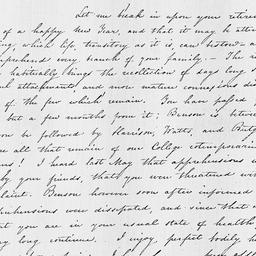 Let me break in upon your retire
of a happy New Year, and that it may be atten
ing which life, transitory as it is, can bestow - a
prehend every branch of your family. - The re
habitually brings the recollection of days long s
l attachments, and more mature connexions dis
of the few which remain. You have passed
but a few months from it; Benson is betwee
you be followed by Harrison, Watts, and Rutg
are all that remain of our College cotemporaries
ns! I heard last May that apprehensions w
by your friends, that you were threatened wi
plaint. Benson however soon after informed
prehensions were dissipated, and since that
t you are in your usual state of health
ay long continue. I enjoy, perfect bodily h